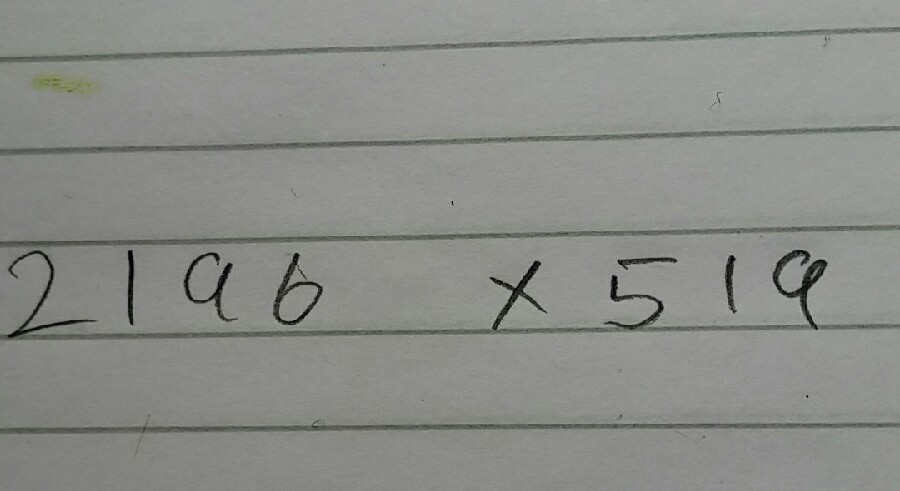 2196 × 519